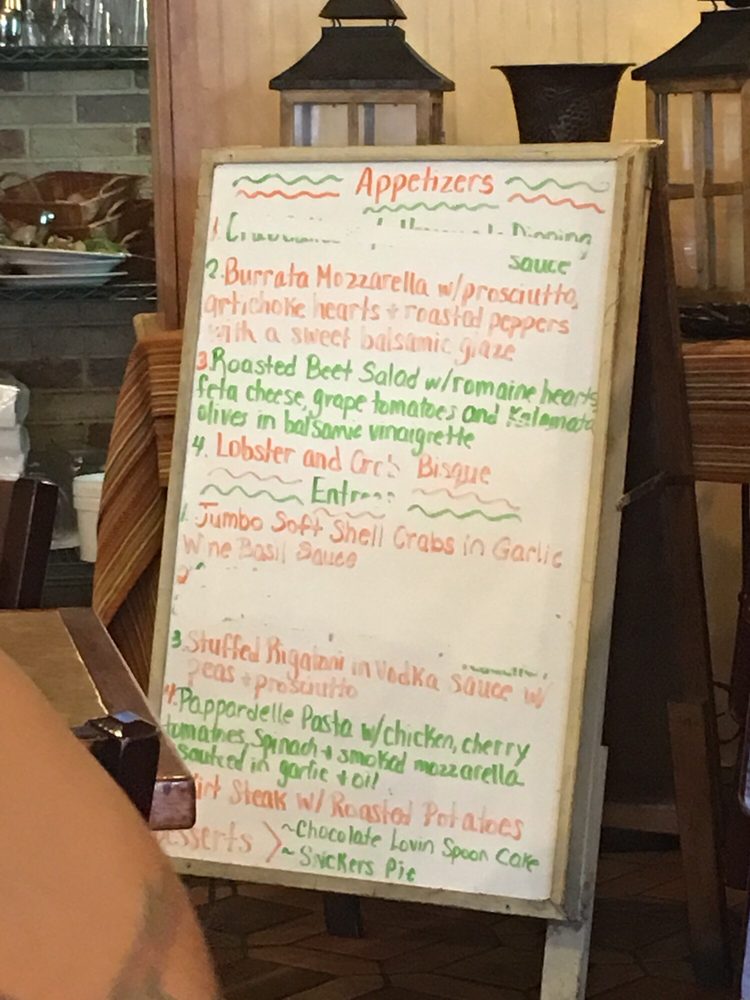 Appetizers
1. Dipping
sauce
2. Burrata Mozzarella w/prosciutto,
artichoke hearts + roasted peppers
with a sweet balsamic glaze
3. Roasted Beet Salad w/romaine hearts
feta cheese, grape tomatoes and Kalamata
olives in balsamic vinaigrette
4. Lobster and Bisque
1. Jumbo Soft Shell Crabs in Garlic
Wine Basil Sauce
2
3. Stuffed Rigatoni in Vodka Sauce w/
peas + prosciutto
4. Pappardelle Pasta w/chicken, cherry
tomatoes, Spinach + smoked mozzarella
sauteed in garlic + oil
Steak w/ Roasted Potatoes
~Chocolate Lovin Spoon Cake
~ Snickers Pie